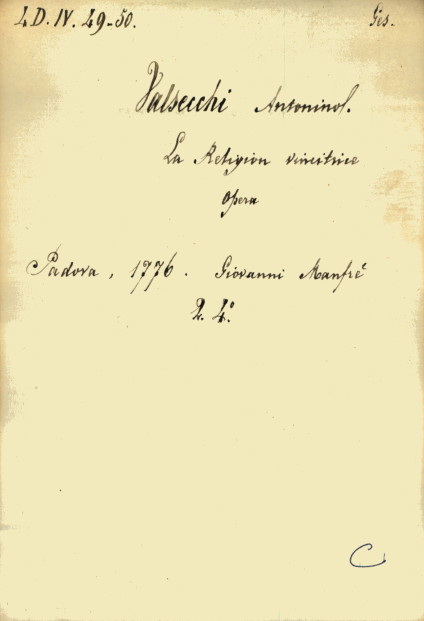 4 D. IV. 49-50. Ges.
Valsecchi Antonino.
La Religion vincitrice
Opera
Padova, 1776. Giovanni Manfrè
2. 4°.
C